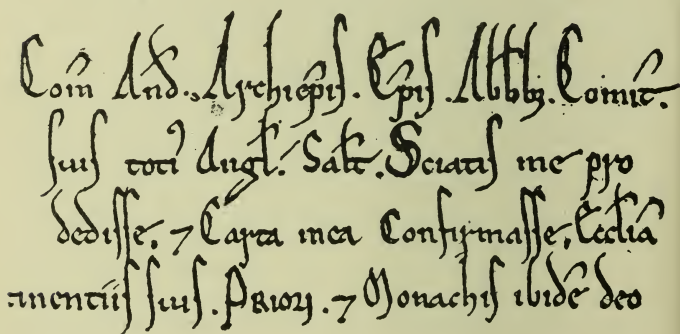 Com̄ And̄. Archiep̄is. Ep̄is. Abb̄bȝ. Comit̄.
suis toti᾽ Angl̄. Sal̄t. Sciatis me pro
dedisse. ⁊ Carta mea Confirmasse. Eccl̄iā
tinentiis suis. Priori. ⁊ Monachis ibidē deo